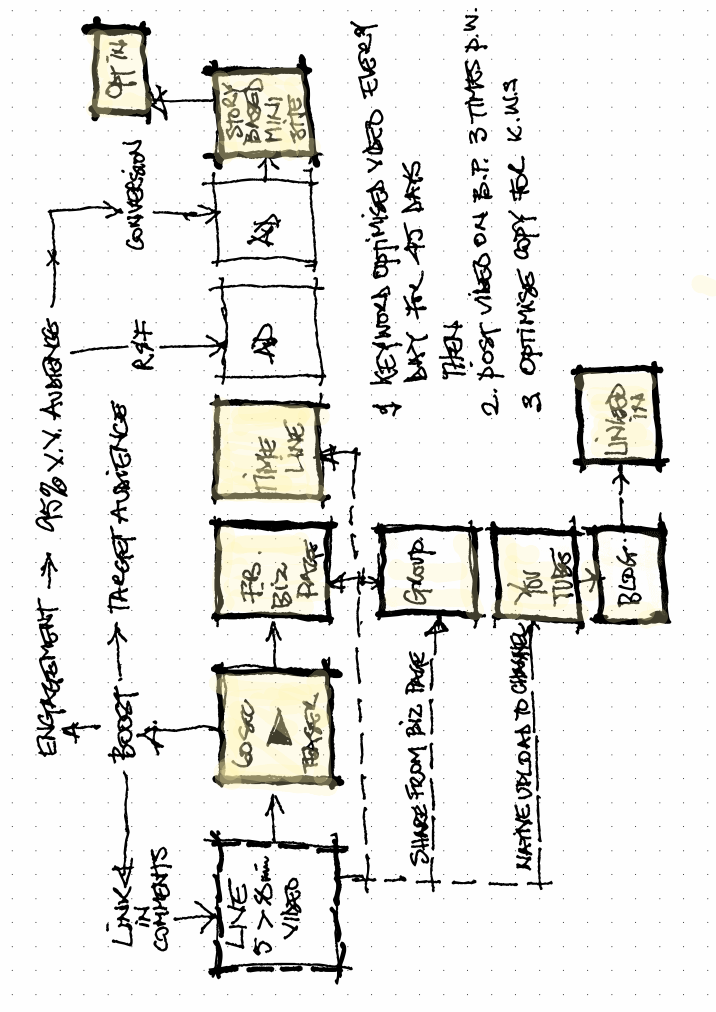 ENGAGEMENT → 95% V.V. AUDIENCE
BOOST → TARGET AUDIENCE
LINK
IN
COMMENTS
R&F
CONVERSION
OPT IN
LIVE
5 > 8 min
VIDEO
60 SEC
TEASER
FB.
BIZ
PAGE
TIME
LINE
AD
AD
STORY
BASED
MINI
SITE
SHARE FROM BIZ PAGE
GROUP.
NATIVE UPLOAD TO CHANNEL
YOU
TUBE
BLOG.
LINKED
IN
1 KEYWORD OPTIMISED VIDEO EVERY
DAY FOR 45 DAYS
THEN
2. POST VIDEO ON B.P. 3 TIMES P.W.
3 OPTIMISE COPY FOR K.W.S